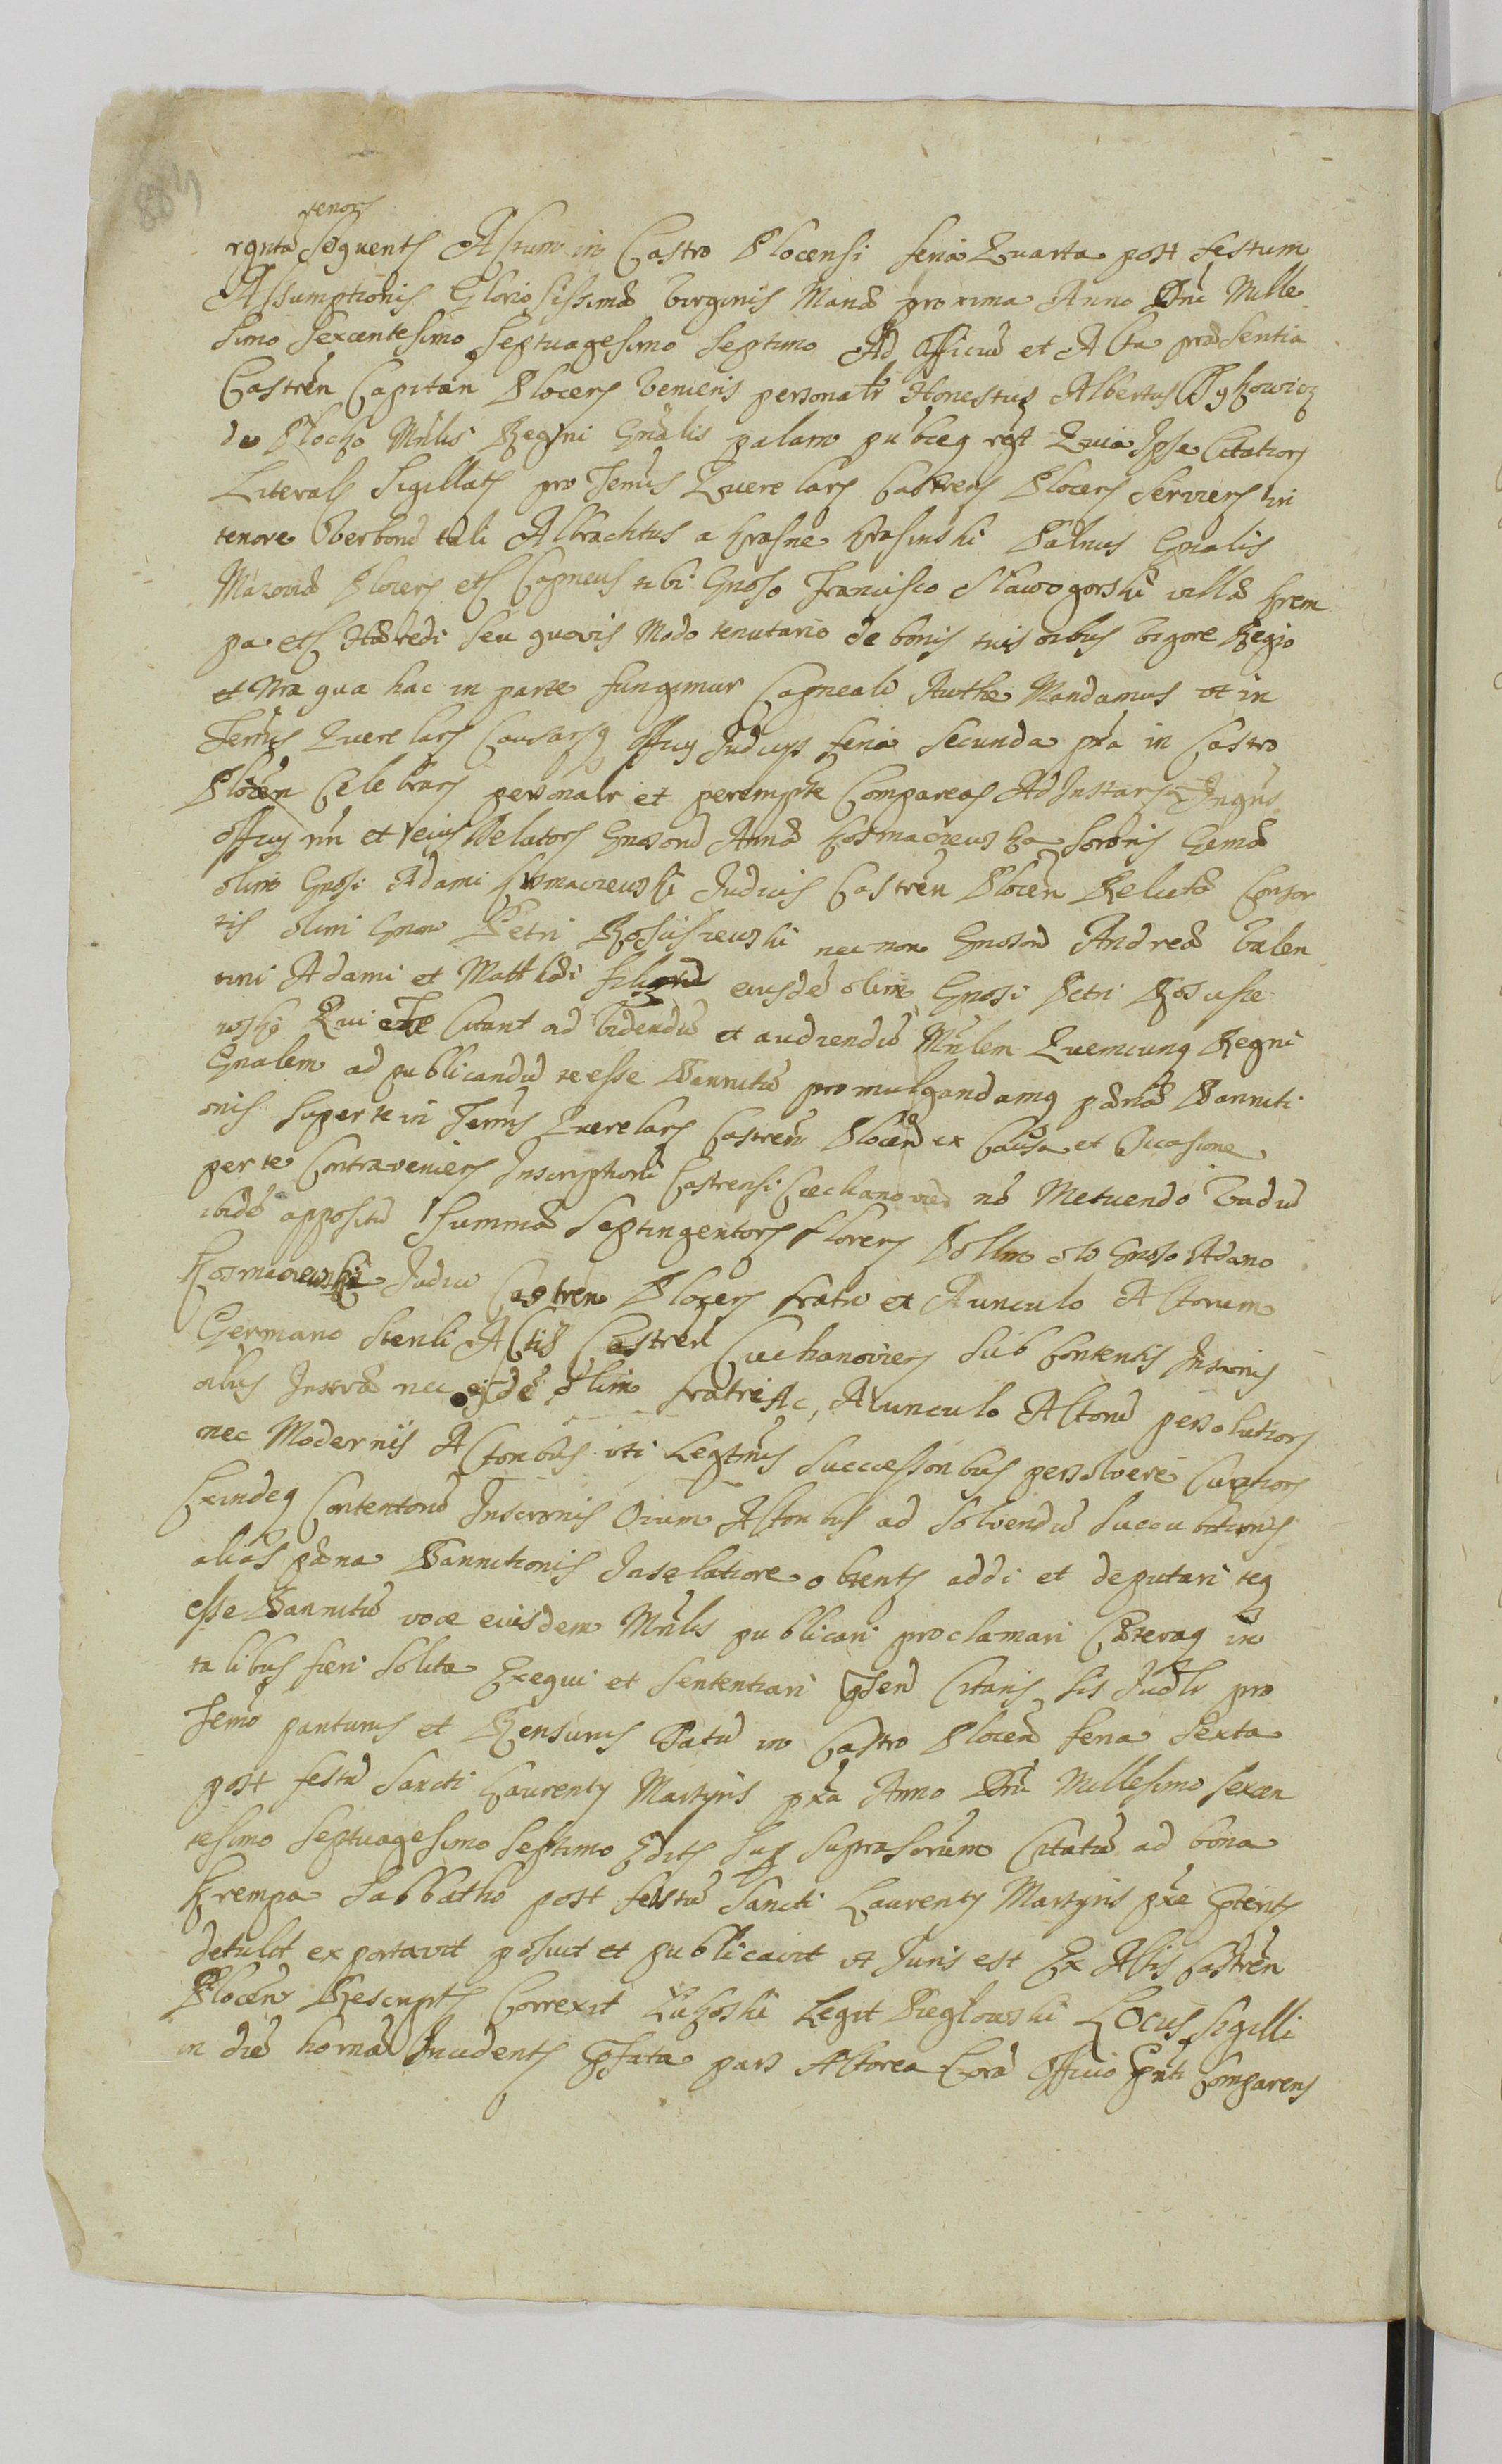 889
tenoris
rgnta sequentis Actum in Castro Plocensi feria Quarta post festum
Assumptionis Gloriosissimæ Virginis Mariæ proxima Anno Dni Mille
simo Sexcentesimo Septuagesimo Septimo Ad Officiū et Acta præsentia
Castren Capitan Plocen Veniens personalr Honestus Albertus
de Plocko Mnlis Regni Gnalis palam pubceq regt Quia Ipse Citations
Literals Sigillats pro Termis Querelars Castrens Plocens Serviens in
tenore Verborū tali Albrachtus a Krasne Krasinski Palnus Gnalis
Mazoviæ Plocens ets Capneus tibi Gnoso Francisco Sławogorski villæ Krem
pa ets Hæredi seu quovis Modo tenutario de bonis tuis oibus vigore Regio
et Nra qua hac in parte fungimur Capneali Authe Mandamus ut in
Termis Querelars Causarsq Officy Judicys feria Secunda pxa in Castro
Plocen Celebrars personalr et perempte Compareas Ad Instans Ingnis
officy nri et eius Delatoris Gnosorū Annæ Kosmaczewska Sororis Gernæ
olim Gnosi Adami Kosmaczewski Judicis Castren Plocen Relictæ Consor
tis olim Gnosi Petri Rosciszewski nec non Gnosorū Andreæ Valen
tini Adami et Matthæi filiorū eiusdē olim Gnosi Petri Roscisze
wski Qui Te Citant ad Videndū et audiendū Mnlem Quemcunq Regni
Gnalem ad publicandū te esse Bannitū promulgandamq pænā Banniti
onis super te in Termis Querelars Castren Plocen ex Causa et Occasione
per te Contraveniens Inscriptioni Castrensi Ciechanovien nō Metuendo Vadiū
ibidē appositū Summæ Septingentors florens Pollm olo Gnoso Adamo
Kosmaczewski Judici Castren Plocens fratri et Avunculo Actorum
Germano Sterili Actis Castren Ciechanoviens sub Contentis Inscronis
olius Inscræ nec eidē olim fratri Ac, Avunculo Actorū persolutiors
nec Modernis Actoribus uti Legtimis Successoribus persolvere Curations
Exindeq Contentorū Inscronis Oium Actoribus ad Solvendū Succubitionis
alias pæna Bannitionis Inselatiore obtents addi et deputari teq
esse Bannitū voce eiusdem Mnlis publicari proclamari Cæteraq in
talibus fieri Solita Exequi et Sententiari Citaris sis Judlr pro
Termo pariturus et Rensurus Datū in Castro Plocen feria Sexta
post festū Sancti Laurenty Martyris pxa Anno Dni Millesimo Sexcen
tesimo Septuagesimo Septimo Edits Suprascrium Citatū ad bona
Krempa Sabbatho post festū Sancti Laurenty Martyris pxe pterits
detulit exportavit posuit et publicavit ut Juris est Ex Actis Castren
Plocen Rescripts Correxit Łukoski Legit Pieglowski LOcus Sigilli
in diē hornā Incidents pfata pars Actorea Corā Officio pnti Comparens